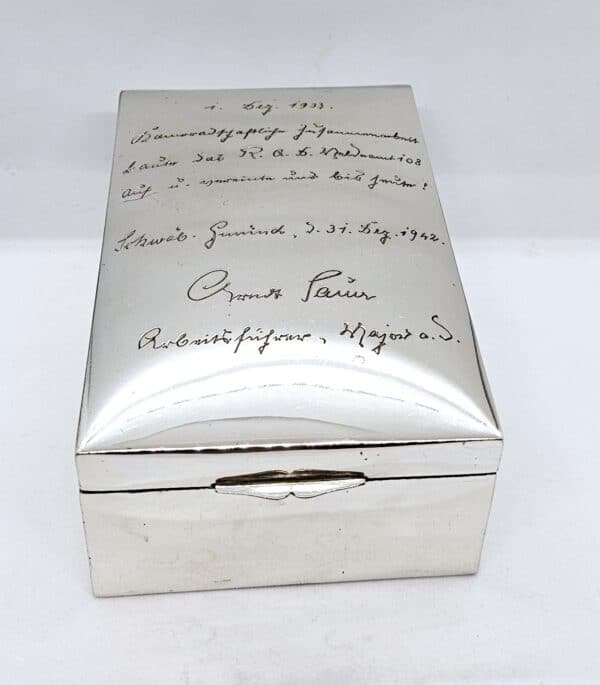 1. Dez. 1933.
Kameradschaftliche Zusammenarbeit
baute das R. A. D. Meldeamt 108
auf u. vereinte uns bis heute!
Schwäb. Gmünd, d. 31. Dez. 1942.
Arndt
Arbeitsführer, Major a. D.